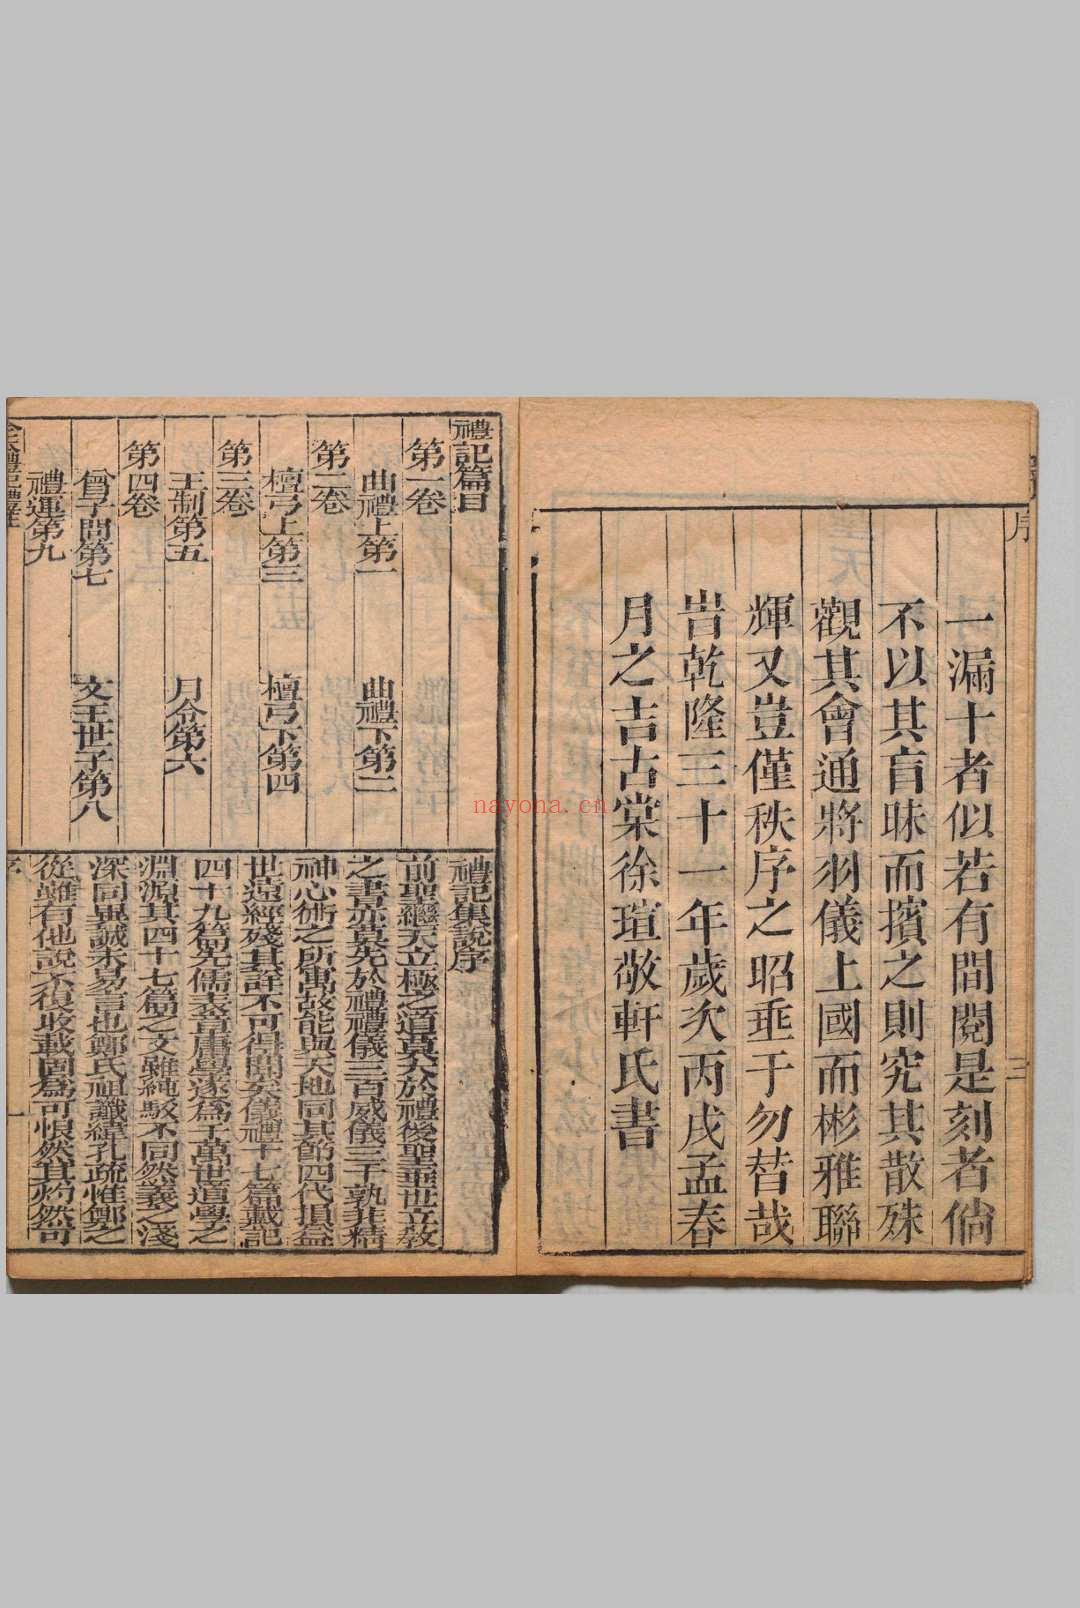 序
一漏十者似若有間閱是刻者倘
不以其盲昧而擯之則究其散殊
觀其會通將羽儀上國而彬雅聯
輝又豈僅秩序之昭垂于勿替哉
旹乾隆三十一年歲次丙戌孟春
月之吉古棠徐瑄敬軒氏書
三
禮記篇目
第一卷
曲禮上第一 曲禮下第二
第二卷
檀弓上第三 檀弓下第四
第三卷
王制第五 月令第六
第四卷
曾子問第七 文王世子第八
禮運第九
禮記集說序
前聖繼天立極之道莫大於禮後聖垂世立教
之書亦莫先於禮禮儀三百威儀三千孰非精
神心術之所寓故能與天地同其節四代損益
世遠經殘其詳不可得聞矣儀禮十七篇戴記
四十九篇先儒表章庸學遂爲千萬世道學之
淵源其四十七篇之文雖純駁不同然義之淺
深同異誠未易言也鄭氏祖讖緯孔疏惟鄭之
從雖有他說不復收載固爲可恨然其灼然可
序
一
nayona.cn